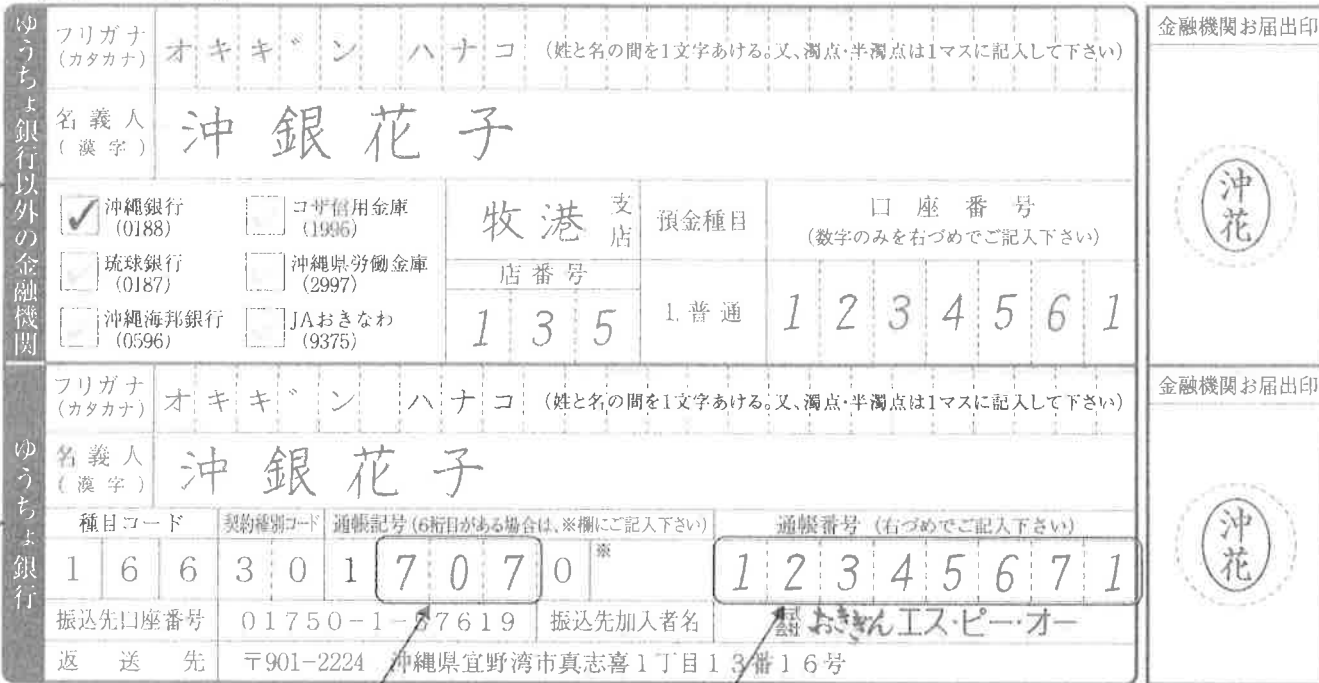 ゆうちょ銀行以外の金融機関
フリガナ
(カタカナ)
オキキ゛ン ハナコ (姓と名の間を1文字あける。又、濁点・半濁点は1マスに記入して下さい)
金融機関お届出印
名義人
(漢字)
沖銀花子
沖花
✓ 沖縄銀行
(0188)
コザ信用金庫
(1996)
琉球銀行
(0187)
沖縄県労働金庫
(2997)
沖縄海邦銀行
(0596)
JAおきなわ
(9375)
牧港 支店
店番号
135
預金種目
1. 普通
口座番号
(数字のみを右づめでご記入下さい)
1234561
ゆうちょ銀行
フリガナ
(カタカナ)
オキキ゛ン ハナコ (姓と名の間を1文字あける。又、濁点・半濁点は1マスに記入して下さい)
金融機関お届出印
名義人
(漢字)
沖銀花子
沖花
種目コード 契約種別コード 通帳記号 (6桁目がある場合は、※欄にご記入下さい) 通帳番号 (右づめでご記入下さい)
166 30 17070 ※ 12345671
振込先口座番号 01750-1-37619 振込先加入者名 株式会社 おきぎんエス・ピー・オー
返送先 〒901-2224 沖縄県宜野湾市真志喜1丁目13番16号